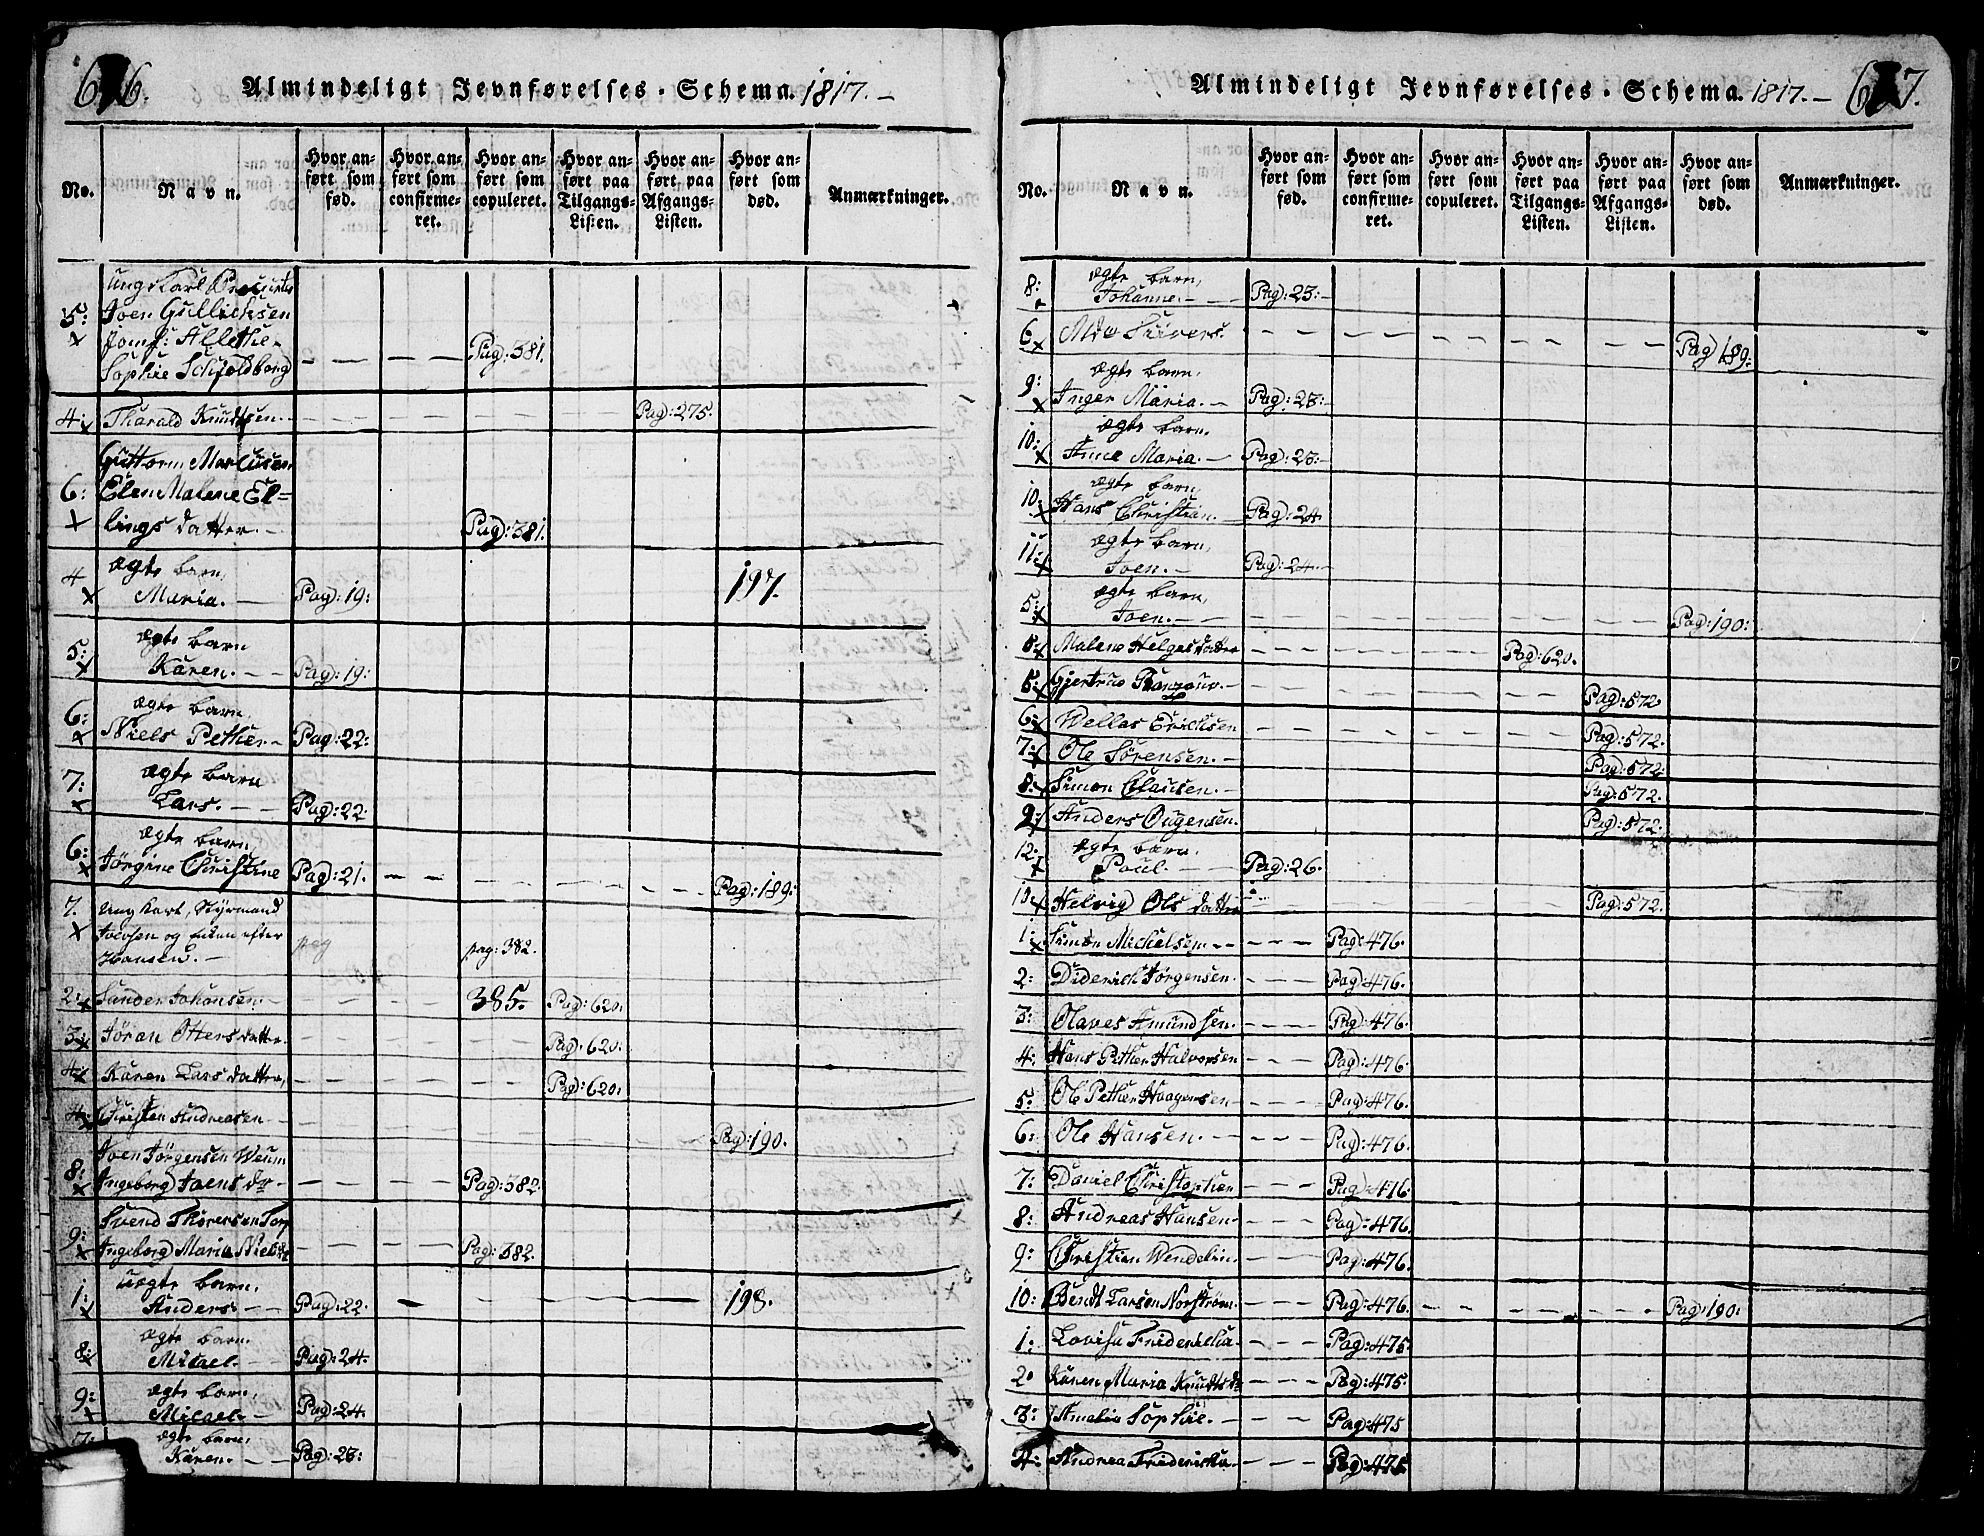 Almindeligt Jevnførelses-Schema. 1817.-
No.
Navn.
Hvor anført som fød.
Hvor anført som confirmeret.
Hvor anført som copuleret.
Hvor anført paa Tilgangs-Listen.
Hvor anført paa Afgangs-Listen.
Hvor anført som død.
Anmærkninger.
Ung Karl
5: Joen Gullichsen
Jomf: Allethe
Sophie Schjoldborg - - - Pag: 381.
4: Tharald Knudtsen. - - - - Pag: 275.
Guttorm Marcusen
6: Elen Malene El=
lings datter. - Pag: 381.
4 ægte barn,
Maria. - Pag: 19: 197.
5: ægte barn
Karen. - Pag: 19:
6: ægte barn,
Niels Pether - Pag: 22:
7: ægte barn
Lars. - Pag: 22.
6: ægte barn,
Jørgine Christine Pag: 21. - - - - Pag: 189:
7. Ung Karl, Styrmand
Jocısen og enken efter pag pag: 382.
Hansen. -
2: Sander Johansen. - - - 385. Pag: 620.
3: Jøran Otters datter. - - - Pag: 620.
4: Karen Lars datter, - - - Pag: 620.
4: Christen Andreasen - - - - - Pag: 190.
Joen Jørgensen Weum
8: Ingeborg Joens dr - - - Pag: 382
Svend Thoresen Torp
9: Ingeborg Maria Niels dr - - - Pag: 382.
1: uægte barn.
Anders - - Pag: 22. - - - - 198.
8: ægte barn.
Micael. - Pag: 24.
9: ægte barn,
Micael. - Pag: 24.
7: ægte barn,
Karen. - - Pag: 23:
Almindeligt Jevnførelses-Schema. 1817. -
No.
Navn.
Hvor anført som fød.
Hvor anført som confirmeret.
Hvor anført som copuleret.
Hvor anført paa Tilgangs-Listen.
Hvor anført paa Afgangs-Listen.
Hvor anført som død.
Anmærkninger.
8: ægte barn,
Johanne. - - Pag: 23: -
6 Sivers. - - - - - - Pag 189:
9: ægte barn.
Inger Maria. - Pag: 23: -
10: ægte barn.
Anne Maria. - Pag: 23: -
10: ægte barn,
Hans Christian. Pag: 24.
11: ægte barn,
Joen. - Pag: 24.
5: ægte barn,
Joen. - - - - - - - Pag: 190:
Malene Helges datter - - - - Pag: 620.
5: Gjertrud - - - - - Pag: 572
6: Wellas Erichsen - - - - Pag: 572.
7: Ole Sørensen. - Pag: 572:
8: Simon Clausen. - Pag: 572.
9: Anders Ougensen. Pag: 572.
12: ægte barn.
Poul. - Pag: 26.
10: Helvig Ols datter Pag: 572.
1: Simon Michelsen. - - - Pag: 476.
2: Diderich Jørgensen. - - - Pag: 476.
3: Olaves Amundsen. - - - Pag: 476.
4: Hans Pether Halvorsen - - - Pag: 476.
5: Ole Pether Haagensen - - - Pag: 476.
6: Ole Hansen. - - - - Pag: 476.
7: Daniel Christophersen - - - Pag: 476
8: Andreas Hansen - - - - Pag: 476.
9: Christian Wendelin - - - Pag: 476.
10: Bendt Larsen Norstrøm. - - - Pag: 476. - - - - Pag: 190.
1: Lovisa Friderichа - - - Pag: 475
2: Karen Maria Knudts dr - - - Pag: 475.
3: Amalia Sophie. - - - - Pag: 475
4: Andrea Fridericka - - - Pag: 475